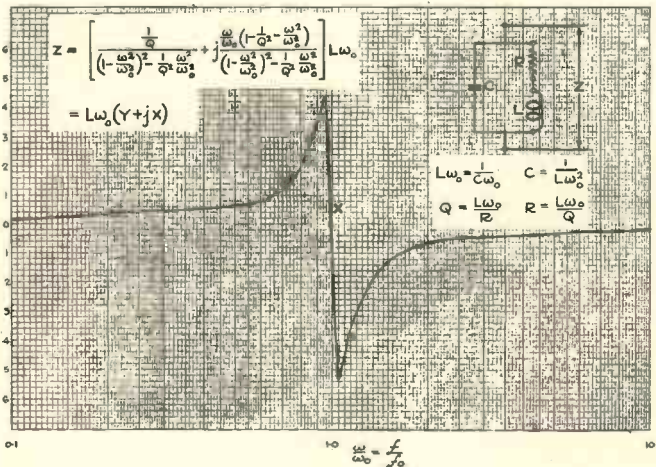 Z = [ (1/Q) / ((1-ω²/ω₀²)² - 1/Q² ω²/ω₀²) + j (ω/ω₀ (1-1/Q²-ω²/ω₀²)) / ((1-ω²/ω₀²)² - 1/Q² ω²/ω₀²) ] Lω₀
= Lω₀(Y+jX)
R
C
L
Z
Lω₀ = 1/Cω₀ C = 1/Lω₀²
Q = Lω₀/R R = Lω₀/Q
X
6
5
4
3
2
1
0
1
2
3
4
5
6
0·1 1·0 10
ω/ω₀ = f/f₀